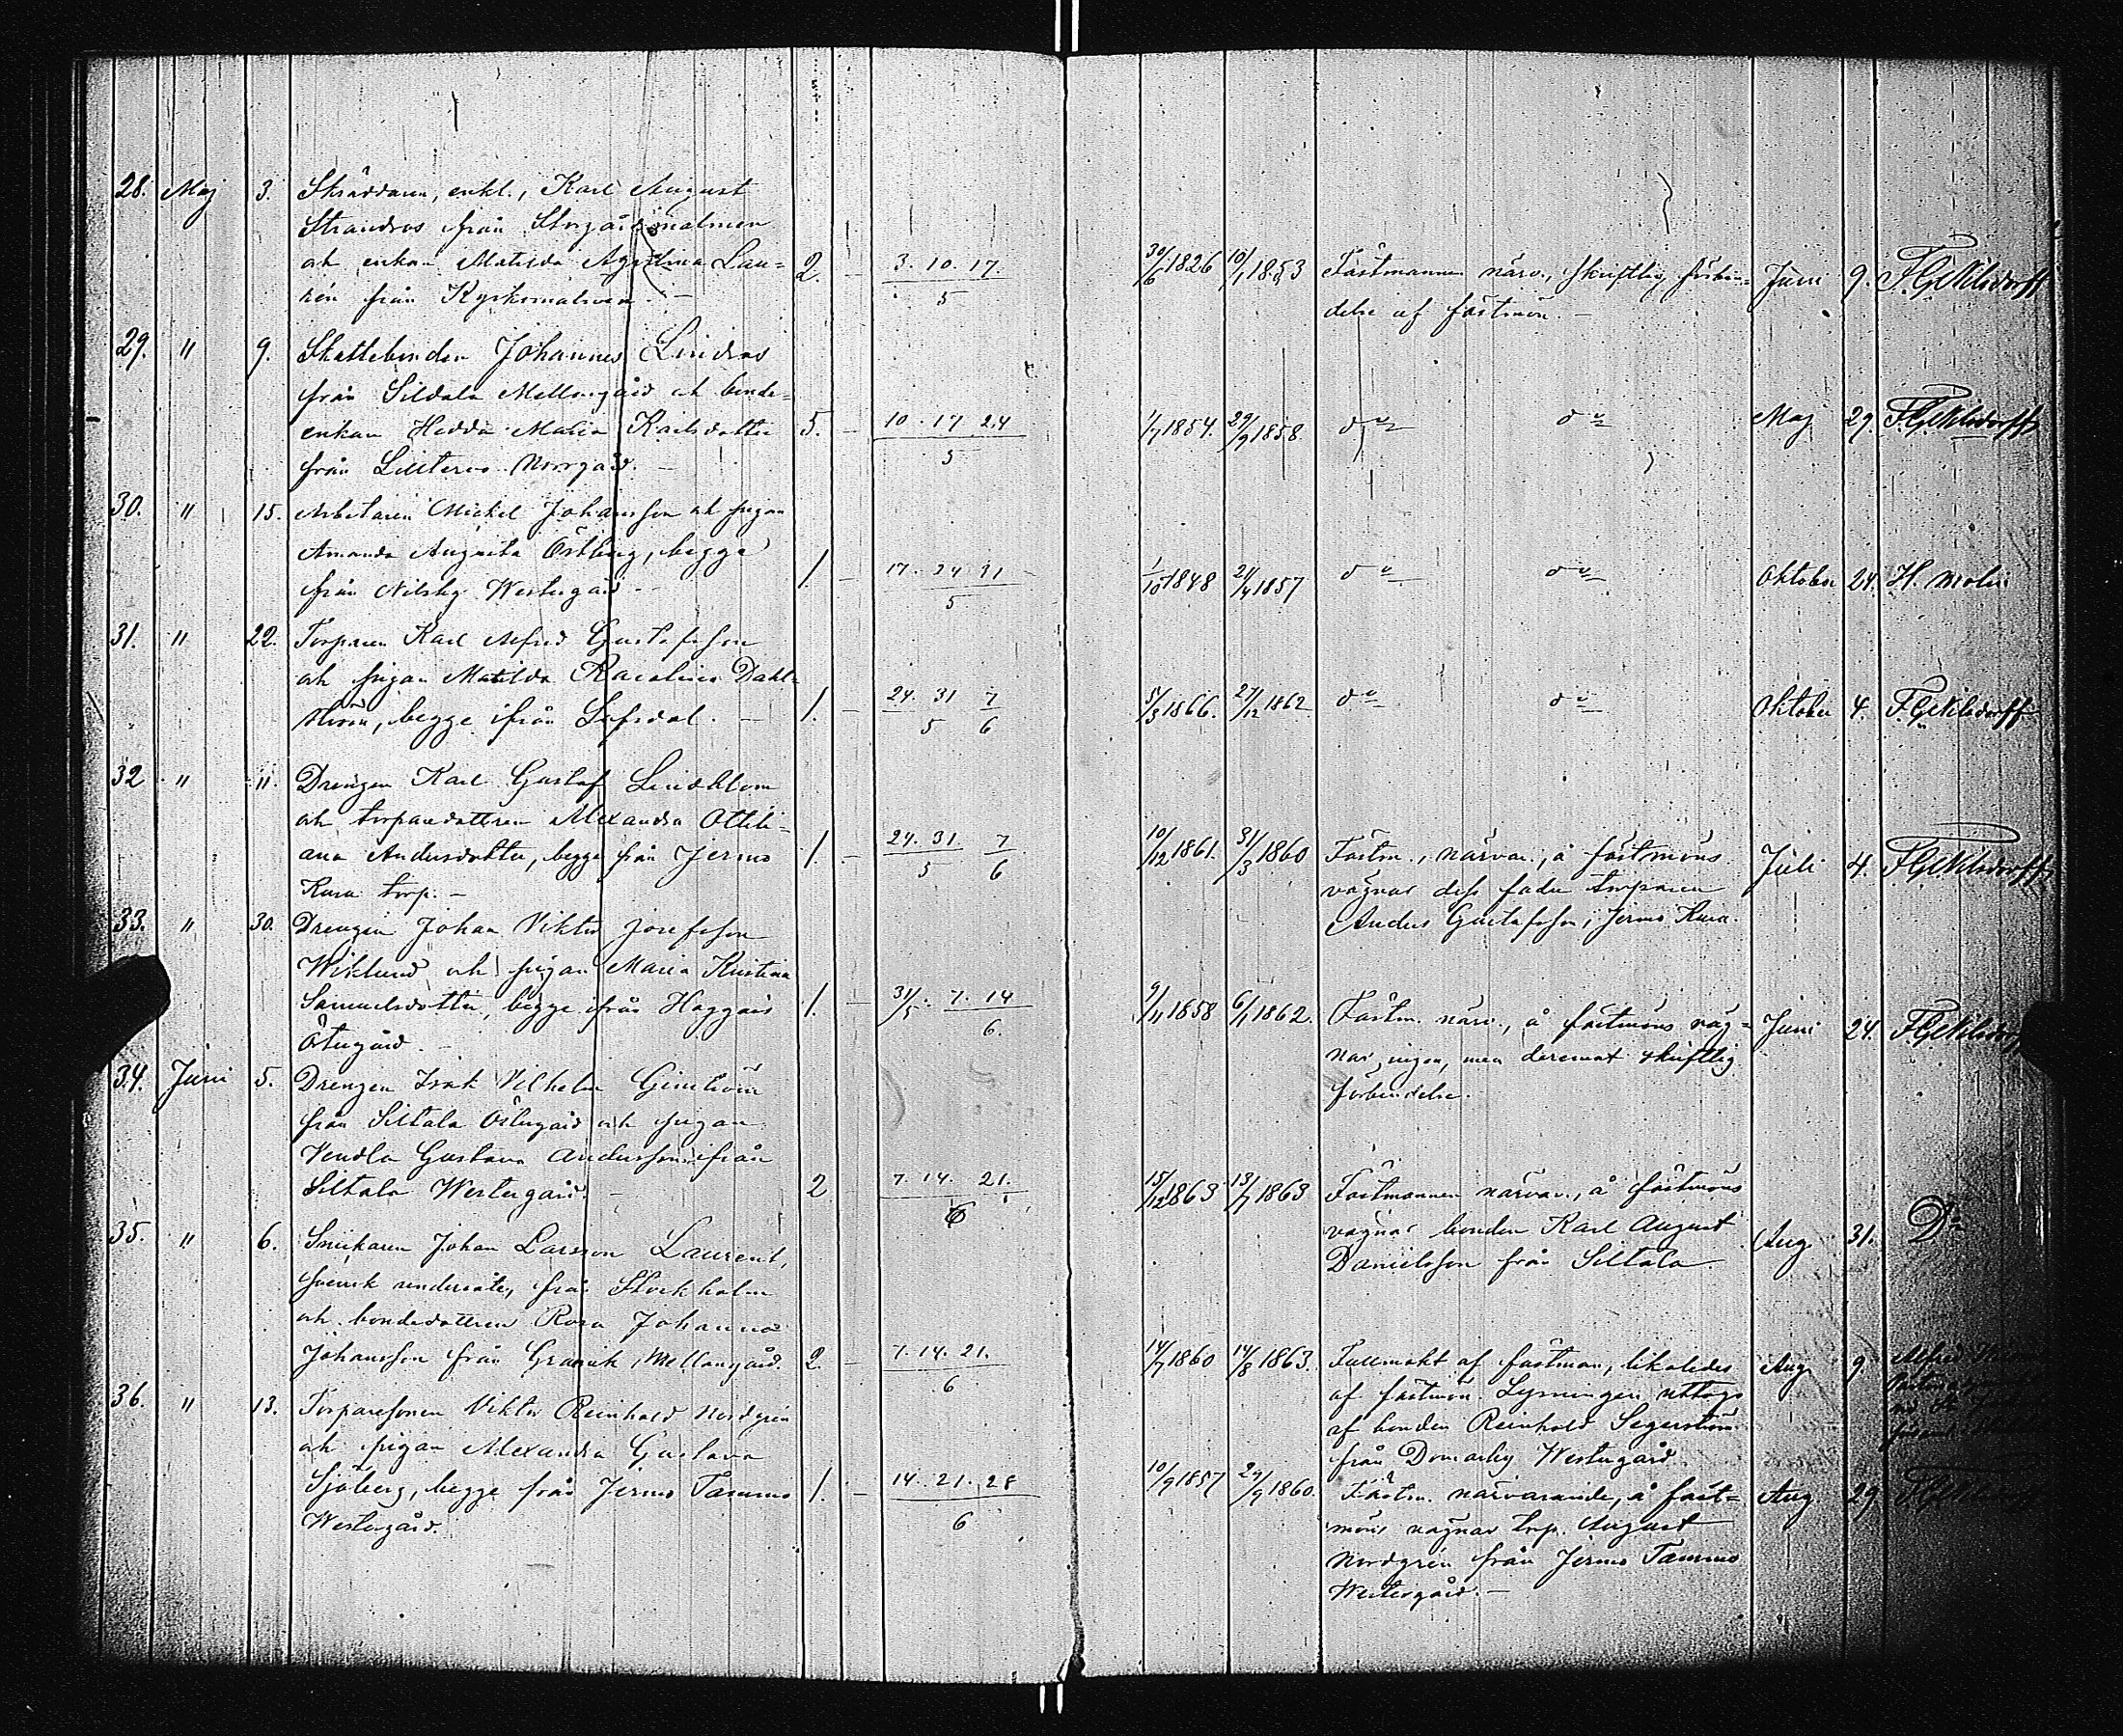 28. Maj 3. Skräddaren, enkl., Karl August
Strandros från Storgårdsmalmen
och enkan Matilda Agustina Lau=
rén från Kyrkomalmen. 2. – 3. 10. 17. / 5 30/6 1826 10/1 1853 Fästmannen närv., skriftlig förbin= Juni 9. F. G. Eklsdorff
delse af fästmön. –
29. " 9. Skattebonden Johannes Lindros
från Sildala Mellangård och bonde=
enkan Hedda Maria Karlsdotter 5. – 10. 17 24 / 5 1/7 1854. 29/9 1858. do do Maj 29.
från Norrgård. –
30. " 15. Arbetaren Mickel Johansson och pigan
Amanda Augusta Östberg, begge
från Nilsby Westergård – 1. – 17. 24 31 / 5 1/10 1848 24/4 1857 do do Oktober 24. H. Molin
31. " 22. Torparen Karl Alfred Gustafsson
och pigan Matilda Karolina Dahl=
ström, begge ifrån Lofsdal. – 1. – 24. 31 / 5 7 / 6 5/3 1866. 27/12 1862 do do Oktober 4.
32 " " Drengen Karl Gustaf Lindblom
och torparedottren Alexandra Ottili=
ana Andersdotter, begge från Jermo 1. – 24. 31 / 5 7 / 6 10/12 1861. 31/3 1860 Fästm., närvar., å fästmöns Juli 4.
Kura torp. – vägnar dess fader torparen
Anders Gustafsson, Jermo Kura.
33. " 30. Drengen Johan Viktor Josefsson
Wiklund och pigan Maria Kristina
Samuelsdotter, begge ifrån Haggais 1. – 31/5. 7. 14 / 6. 9/11 1858 6/1 1862. Fästm. närv., å fästmöns väg= Juni 24.
Östergård. – nar ingen, men deremot skriftlig
förbindelse.
34. Juni 5. Drengen Isak Vilhelm
från Siltala Östergård och pigan
Vendla Gustava Andersson ifrån
Siltala Westergård. – 2 7. 14. 21. / 6 15/12 1863 13/7 1863 Fästmannen närvar., å fästmöns
vägnar bonden Karl August Aug. 31. Do
Danielsson från Siltala
35. " 6. Snickaren Johan Larsson Laurent,
svensk undersåte, från Stockholm
och bondedottren Rosa Johanna
Johansson från Granvik, Mellangård. 2. – 7. 14. 21. / 6 14/7 1860 14/8 1863. Fullmakt af fästman, likaledes Aug 9 Alfred
af fästmön. Lysningen uttogs
af bonden Reinhold Segerström
från Domarby Westergård
36. " 13. Torparesonen Viktor Reinhold Nordgrén
och pigan Alexandra Gustava
Sjöberg, begge från Jermo Tammo 1. – 14. 21. 28 / 6 10/9 1857 29/9 1860. Fästm. närvarande, å fäst= Aug 29
Westergård. möns vägnar torp. August
Nordgrén från Jermo Tammo
Westergård. –